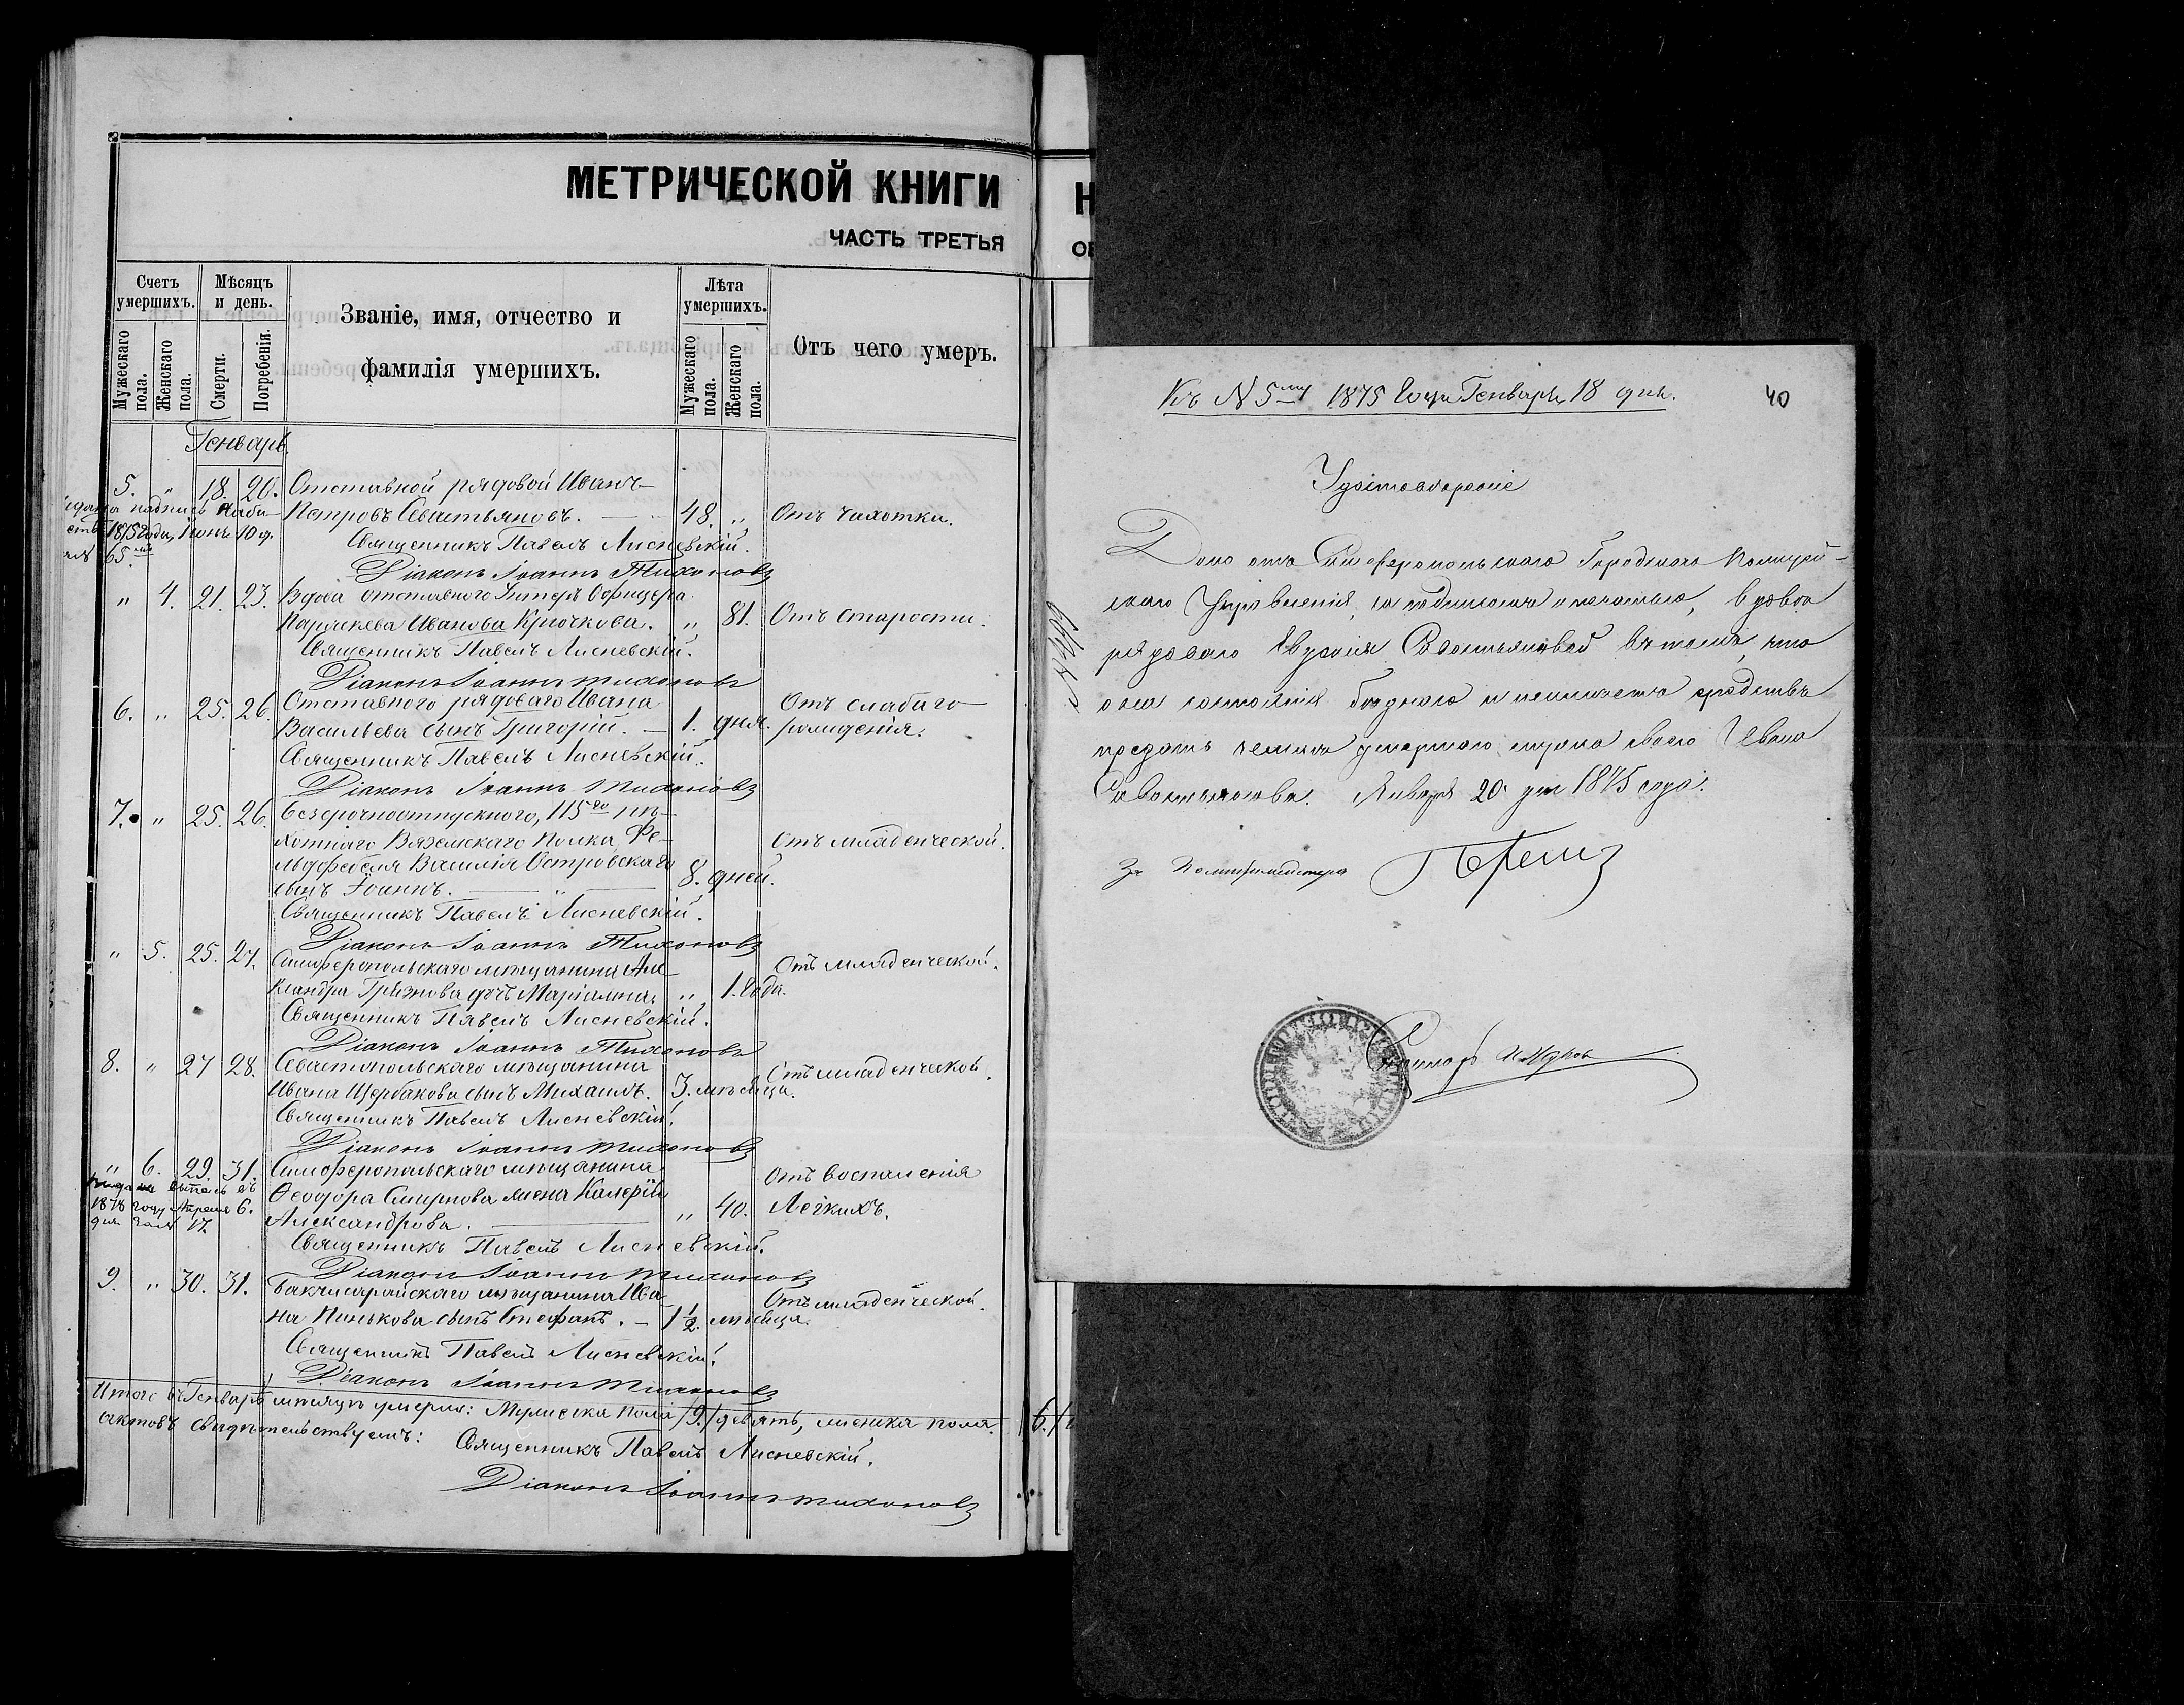 МЕТРИЧЕСКОЙ КНИГИ
ЧАСТЬ ТРЕТЬЯ
Счетъ умершихъ.
Мужескаго пола.
Женскаго пола.
Мѣсяцъ и день.
Смерти.
Погребенія.
Званіе, имя, отчество и
фамилія умершихъ.
Лѣта умершихъ.
Мужескаго пола.
Женскаго пола.
Отъ чего умеръ.
Генварь.
5. „ 18. 20. Отставной рядовой Иванъ
Петровъ Севастьяновъ. 48. „ Отъ чахотки.
1875 года, Іюнь 10 д.
65
Священникъ Павелъ Лисневскій.
Діаконъ Іоаннъ Тихоновъ
„ 4. 21. 23. Вдова отставного Унтеръ Офицера
Параскева Иванова Крючкова. „ 81. Отъ старости.
Священникъ Павелъ Лисневскій.
Діаконъ Іоаннъ Тихоновъ
6. „ 25. 26. Отставного рядоваго Ивана Отъ слабаго
Васильева сынъ Григорій. 1. дня. рожденія.
Священникъ Павелъ Лисневскій.
Діаконъ Іоаннъ Тихоновъ
7. „ 25. 26. Безсрочноотпускного, 115го пѣ-
хотнаго Вяземскаго полка Фе- Отъ младенческой.
льдфебеля Василія Островскаго
сынъ Іоаннъ. „ 8. дней.
Священникъ Павелъ Лисневскій.
Діаконъ Іоаннъ Тихоновъ
„ 5. 25. 27. Симферопольскаго мѣщанина Але- Отъ младенческой.
ксандра Грязнова дочь Маріамна. „ 1. года.
Священникъ Павелъ Лисневскій.
Діаконъ Іоаннъ Тихоновъ
8. „ 27 28. Севастопольскаго мѣщанина Отъ младенческой.
Ивана Щербакова сынъ Михаилъ. 3. мѣсяца.
Священникъ Павелъ Лисневскій.
Діаконъ Іоаннъ Тихоновъ
„ 6. 29. 31. Симферопольскаго мѣщанина Отъ воспаленія
Ѳеодора Смирнова жена Калерія
Александрова. „ 40. Легкихъ.
1878 году Апреля 6.
дня 17.
Священникъ Павелъ Лисневскій.
Діаконъ Іоаннъ Тихоновъ
9. „ 30. 31. Бакчисарайскаго мѣщанина Ива- Отъ младенческой.
на Пинькова сынъ Стефанъ. 1 1/2. мѣсяца.
Священникъ Павелъ Лисневскій.
Діаконъ Іоаннъ Тихоновъ
Итого въ Генварѣ мѣсяцѣ умерло: Мужеска пола /9./ девять, женска пола. /6./
актовъ свидѣтельствуемъ:
Священникъ Павелъ Лисневскій.
Діаконъ Іоаннъ Тихоновъ
Къ N 5му 1875 Года Генваря 18 дня.
40
Удостовереніе
Дано отъ Симферопольскаго Городскаго Полицей-
скаго Управленія, за подписью и печатью, вдове
рядоваго Савостьяновой въ томъ, что
она состоянія беднаго и неимеетъ средствъ
предать земли умершаго мужа своего Ивана
Савостьянова. Января 20 дня 1875 года.
За Полицмейстера